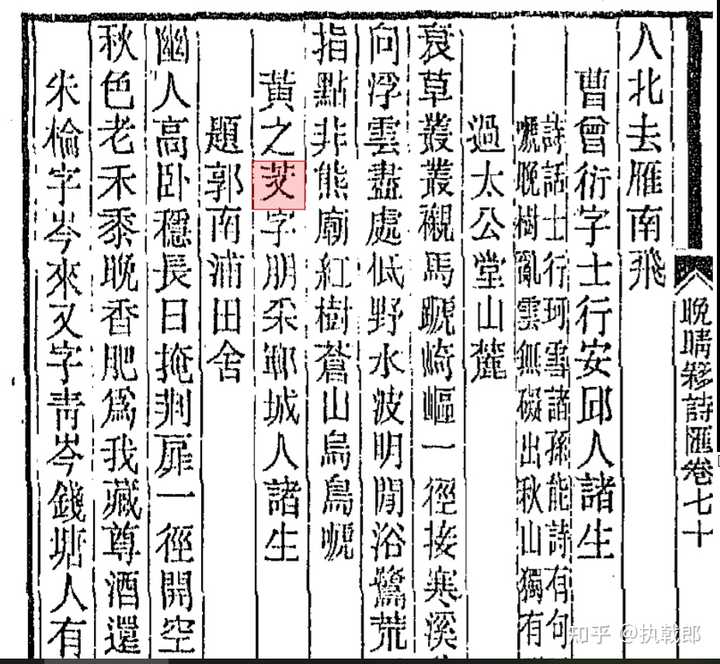 晚晴簃詩匯卷七十
人北去雁南飛
曹曾衍字士行安邱人諸生
詩話士行珂雪諸孫能詩有句
嗁晚樹亂雲無礙出秋山獨有
過太公堂山麓
衰草叢叢襯馬蹏崎嶇一徑接寒溪
向浮雲盡處低野水波明閒浴鷺荒
指點非熊廟紅樹蒼山烏鳥嗁
黃之字朋采鄆城人諸生
題郭南浦田舍
幽人高卧穩長日掩荆扉一徑開空
秋色老禾黍晚香肥爲我藏尊酒還
朱棆字岑來又字靑岑錢塘人有
知乎 @执戟郎